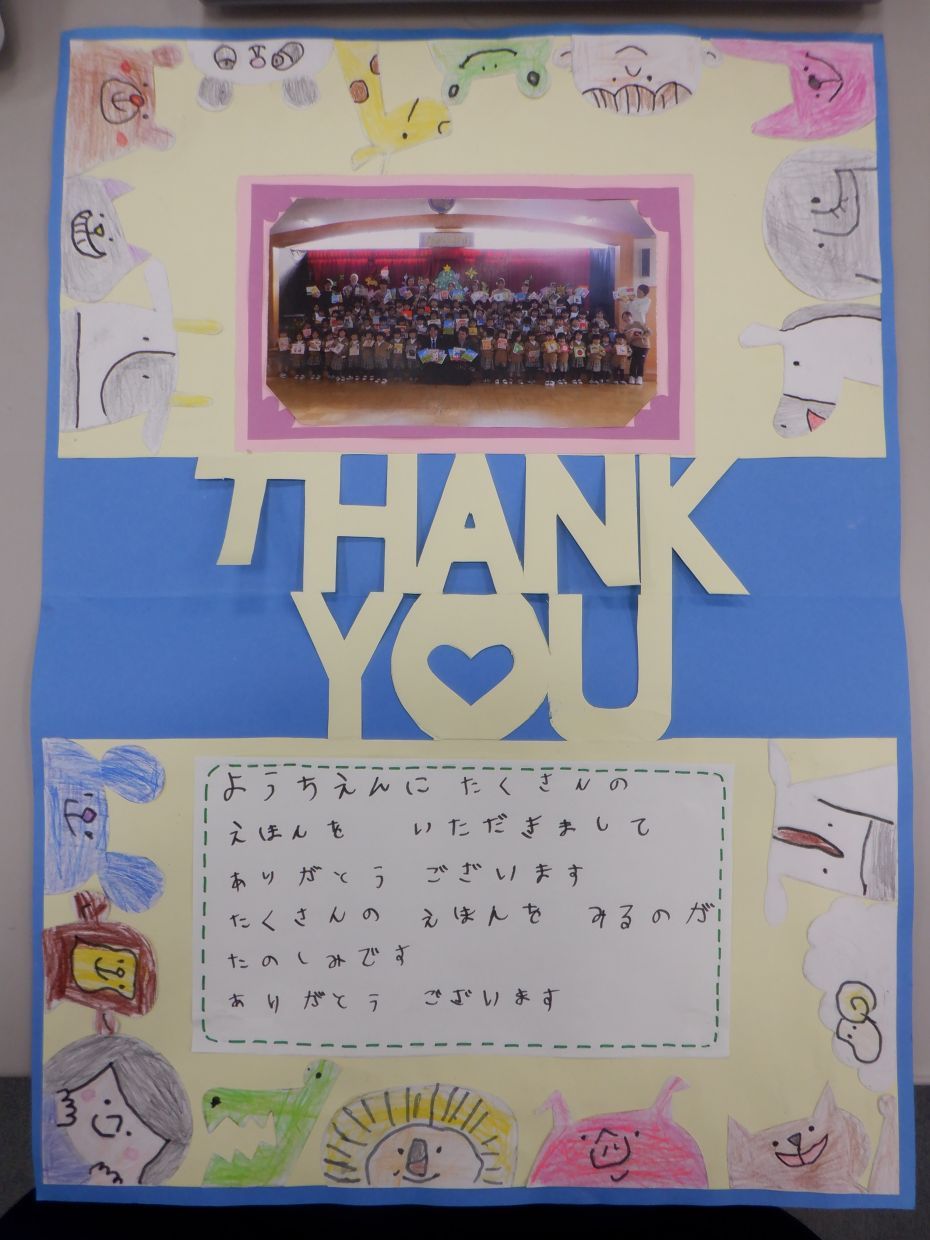 THANK
YOU
ようちえんに たくさんの
えほんを いただきまして
ありがとう ございます
たくさんの えほんを みるのが
たのしみです
ありがとう ございます